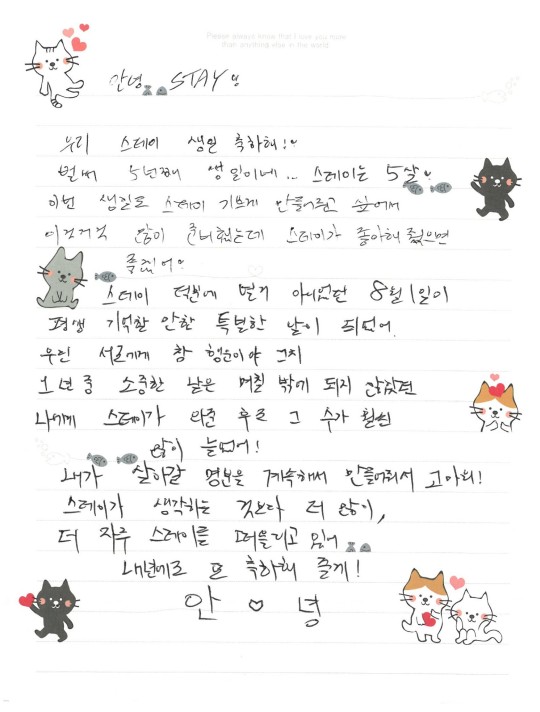 Please always know that I love you more
than anything else in the world.
안녕 STAY
우리 스테이 생일 축하해!
벌써 5년째 생일이네.. 스테이는 5살
이번 생일도 스테이 기쁘게 만들어주고 싶어서
이것저것 많이 준비했는데 스테이가 좋아해 줬으면
좋겠어
스테이 덕분에 별거 아니었던 8월 1일이
평생 기억할 만한 특별한 날이 되었어.
우린 서로에게 참 행운이야 그치
1년 중 소중한 날은 며칠 밖에 되지 않았던
나에게 스테이가 와준 후로 그 수가 훨씬
많이 늘었어!
내가 살아갈 명분을 계속해서 만들어줘서 고마워!
스테이가 생각하는 것보다 더 많이,
더 자주 스테이를 떠올리고 있어
내년에도 또 축하해 줄게!
안 ♡ 녕